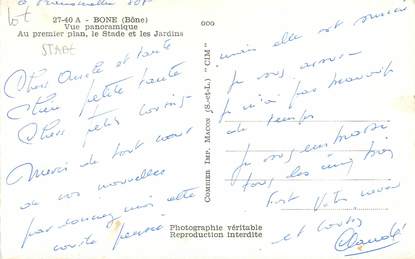 lot
27-40 A - BONE (Bône)
Vue panoramique
Au premier plan, le Stade et les Jardins
STADE
Chers Oncle et tante
Chère petite tante
Chers petits cousins
Merci de tout cœur
de vos nouvelles
pardonnez moi cette
courte pensée
COMBIER IMP. MACON (S.-et-L.) "CIM"
mais elle est
Je vous assure
Je n'ai pas
de temps
Je vous embrasse
tous les cinq
Votre neveu
et cousin
Claude
Photographie véritable
Reproduction interdite